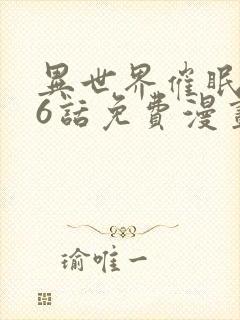 異世界催眠
6話免費漫畫
瑜唯一